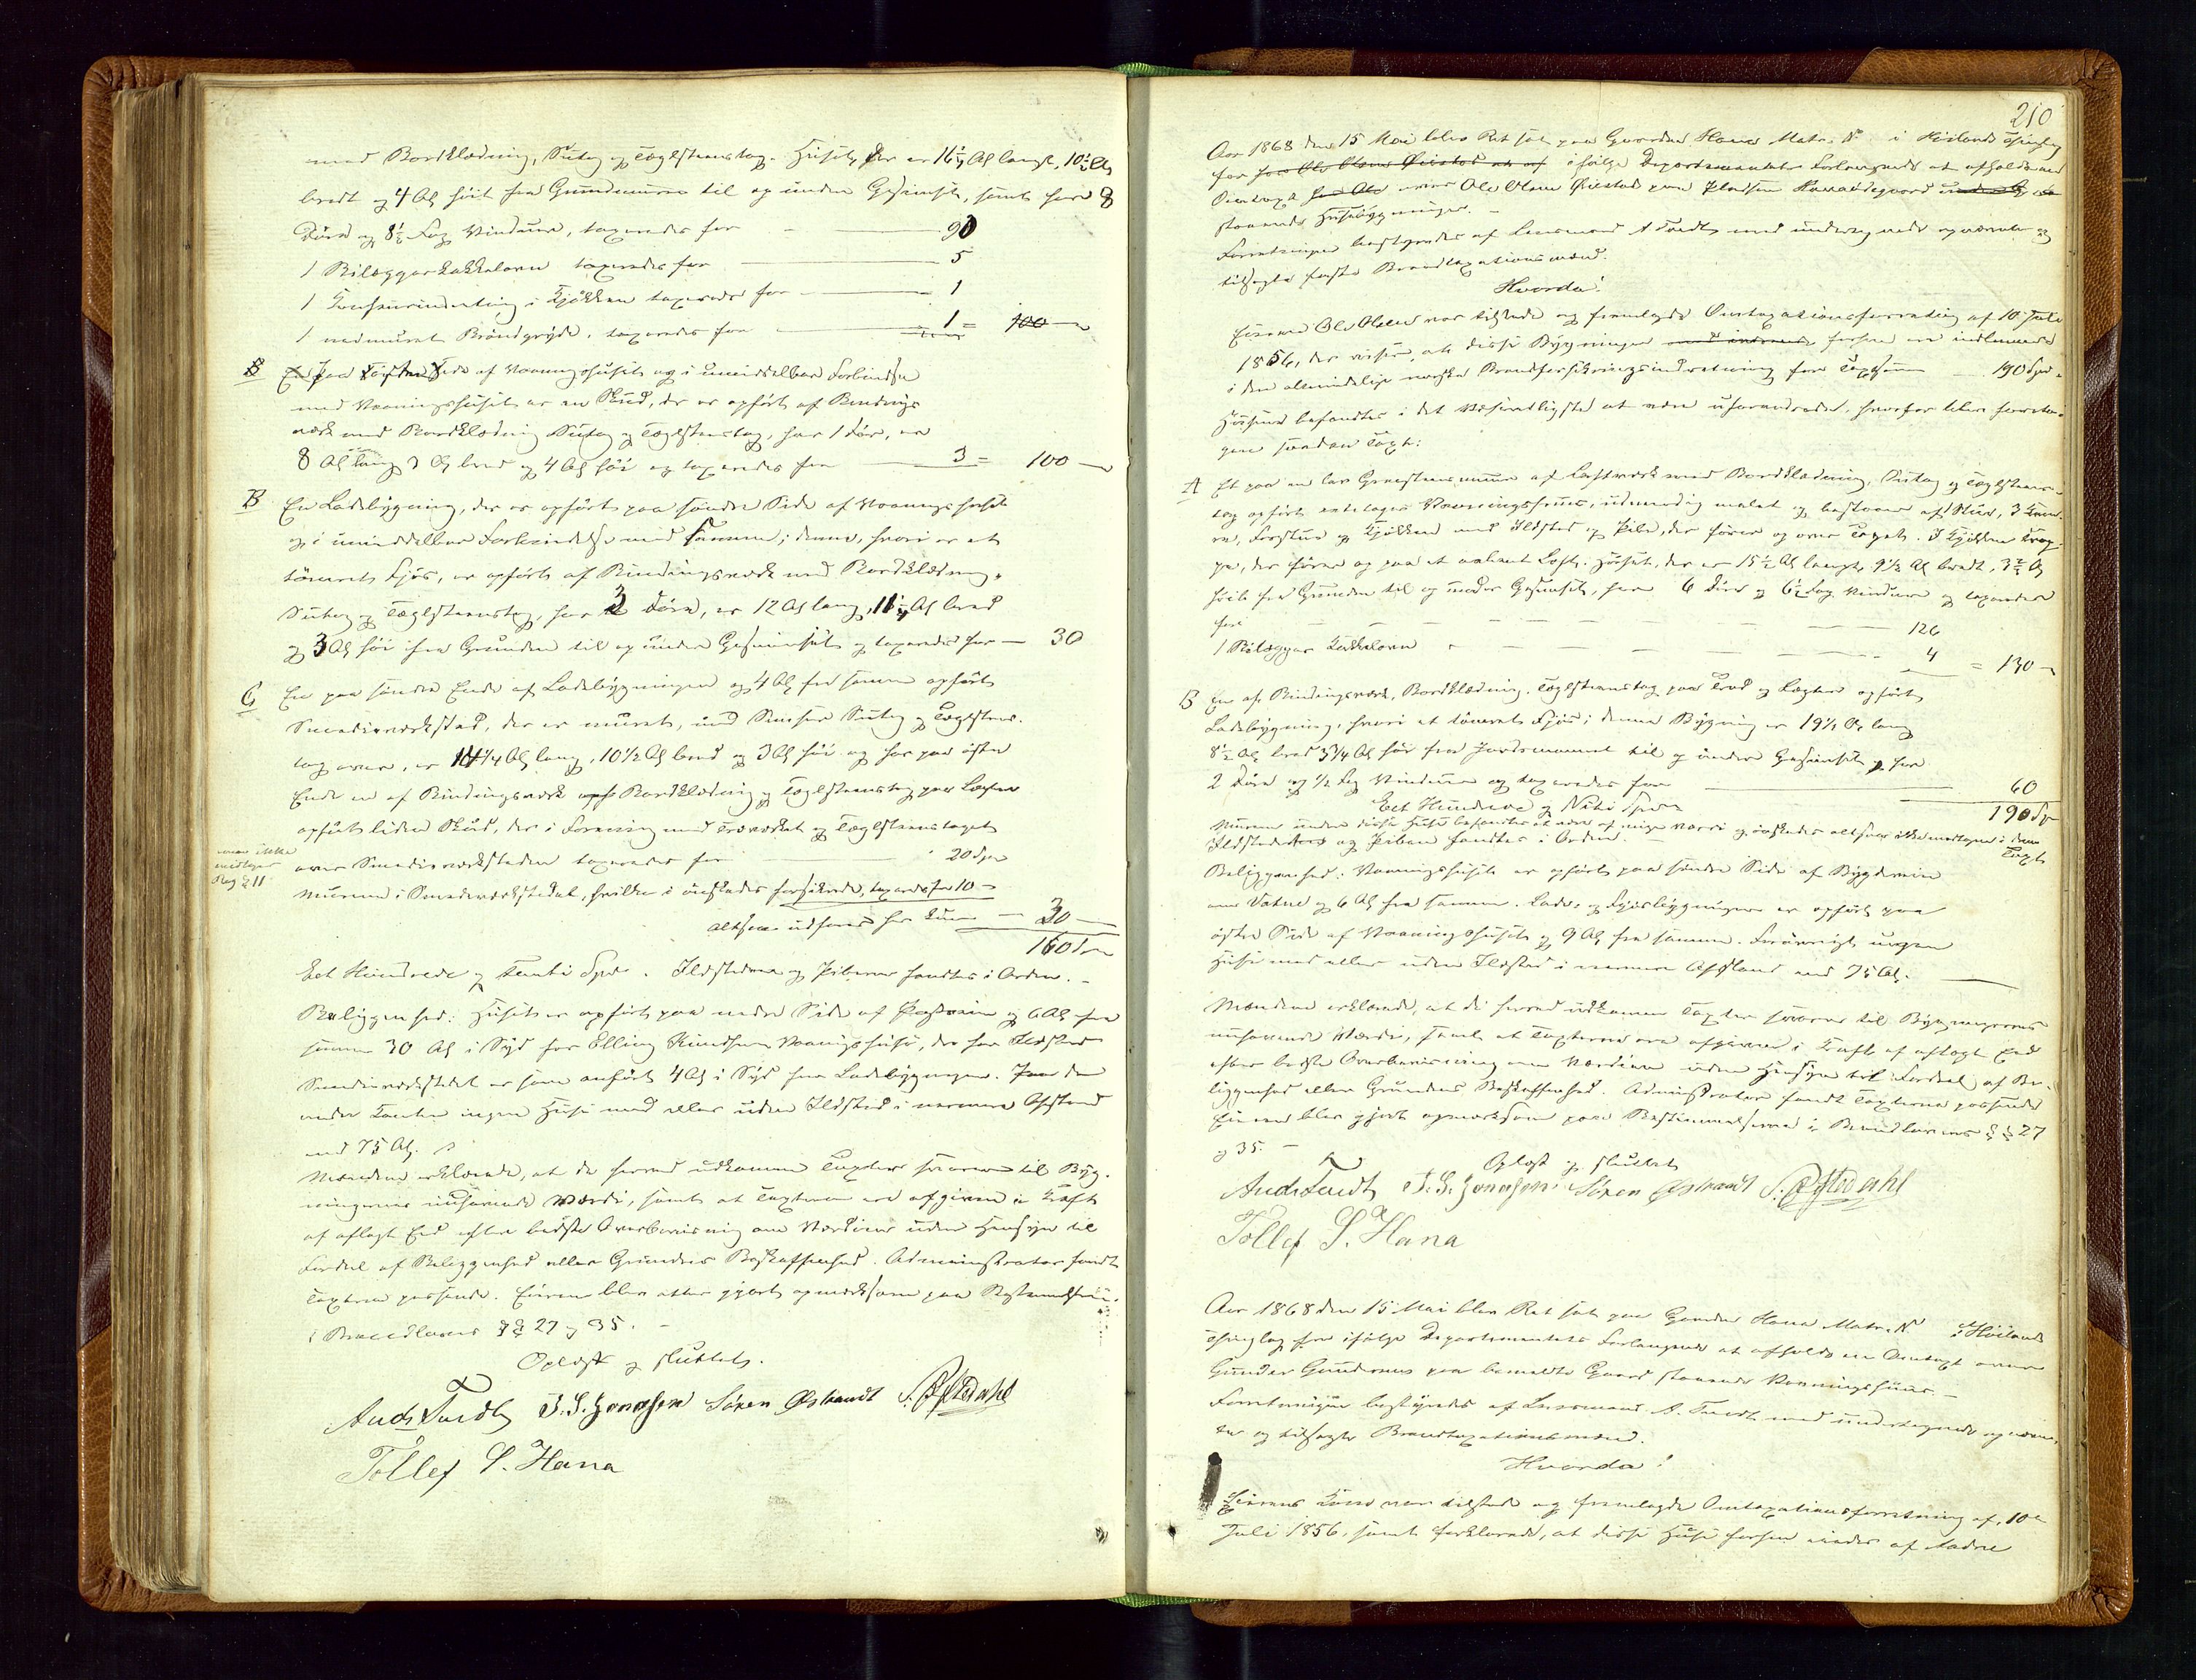 med Bordklædning, Sutag og Tæglsteenstag. Huset, der er 16 1/4 Al langt, 10 1/2 Al
bredt og 4 Al höit fra Grundmuren til op under Gesimset, samt har 8
Döre og 8 1/2 Fag Vinduer, taxeredes for 90
1 Bilæggerkakkelovn taxeredes for 5
1 Komfurindretning i Kjökken taxeredes for 1
1 nedmuret Bröndgryde, taxeredes for 1 = 100
B Paa Side af Vaaningshuset og i umiddelbar Forbindelse
med Vaaningshuset er en Skud, der er opfört af Bindings
værk med Bordklædning Sutag og Tæglsteenstag, har 1 Dör, er
8 Al lang 3 Al bred og 4 Al höi og taxeredes for 3 = 100
B En Ladebygning, der er opfört paa söndre Side af Vaaningshuset
og i umiddelbar Forbindelse med samme; denne, hvori er et
tömret Fjös, er opfört af Bindingsværk med Bordklædning,
Sutag og Tæglsteenstag, har 3 Döre, er 12 Al lang, 11 1/4 Al bred
og 3 Al höi fra Grunden til op under Gesimset og taxeredes for 30
C En paa söndre Ende af Ladebygningen og 4 Al fra samme opfört
Smedieværksted, der er muret, med Sutag og Tæglsteens-
tag over, er 14 1/4 Al lang, 10 1/2 Al bred og 3 Al höi og har paa östre
Ende en af Bindingsværk Bordklædning og Tæglsteenstag paa Lægter
opfört liden Skud, der i Forening med Træværket og Tæglsteenstaget
over Smedieværkstedet taxeredes for 20 Spd
ikke
medtages
Reg § 11
Murene i Smedieværkstedet, hvilke önskedes forsikrede, taxeredes for 10
altsaa udföres her kun 30
160 Spd
Eet Hundrede og Spd. Ildstederne og Piberne fandtes i Orden.
Beliggenhed: Huset er opfört paa nedre Side af og 6 Al fra
samme 30 Al i Syd for Elling Vaaningshuus, der har Ildsted
Smedieværkstedet er som anfört 4 Al i Syd fra Ladebygningen. Paa de
andre Kanter ingen Huse med eller uden Ildsted i nærmere Afstand
end 75 Al.
Mændene erklærede, at de herved udkomne Taxter svarer til Byg-
ningernes nuhavende Værdi, samt at Taxterne ere afgivne i Kraft
af aflagt Eed efter bedste Overbeviisning om Værdien uden Hensyn til
Fordeel af Beliggenhed eller Grundens Beskaffenhed. Administrator fandt
Taxterne passende. Eieren blev efter gjort opmærksom paa Bestemmelserne
i Brandlovens §§ 27 og 35.
Oplæst og sluttet.
And. Tuedt J. S. Jonasen Sören Østraadt S. Østedahl
Tollef S. Hana
210
Aar 1868 den 15 Mai blev Ret sat paa Gaarden Hana Matr. No i Höilands Thinglag
for ifölge Departementets Forlangende at afholde en
Omtaxt over Ole Olsens paa Pladsen
staaende Huusbygninger.
Forretningen bestyredes af Lensmand A Tuedt med undertegnede opnævnte og
tilsagte faste Brandtaxationsmænd.
Hvorda!
Eieren Ole Olsen var tilstede og fremlagde Omtaxationsforretning af 10 Juli
1856, der viser, at disse Bygninger forhen ere indlemmede
i den almindelige norske Brandforsikringsindretning for Taxtsum 190 Spd.
Husene befandtes i det Væsentligste at være uforandrede, hvorfor blev foreta-
gen saadan Taxt:
A Et paa en lav Graasteensmuur af Lastværk med Bordklædning, Sutag og Tæglsteens-
tag opfört eetetages Vaaningshuus, udvendig malet og bestaaer af Stue, 3 Kam-
re, Forstue og Kjökken med Ildsted og Pibe, der förer op over Taget. I Kjökken Trap-
pe, der förer op paa et aabent Loft. Huset, der er 15 1/2 Al langt, 9 1/2 Al bredt, 3 3/4 Al
höit fra Grunden til op under Gesimset, har 6 Döre og 6 1/2 Fag Vinduer og taxeredes
for 126
1 Bilægger Kakkelovn 4 = 130
B En af Bindingsværk, Bordklædning, Tæglsteenstag paa Troed og Lægter opfört
Ladebygning, hvori et tömret Fjös; denne Bygning er 19 1/2 Al lang
8 1/2 Al bred 3 3/4 Al höi fra Jordsmonnet til op under Gesimset, har
2 Döre og 1/2 Fag Vindue og taxeredes for 60
Eet Hundrede og Niti Spd 190 Spd
Murene under disse Huse befandtes at være af ringe Værdi og önskedes altsaa ikke medtagen i denne
Ildstederne og Piben fandtes i Orden. Taxt
Beliggenhed: Vaaningshuset er opfört paa söndre Side af Bygdeveien
og 6 Al fra samme. Lade- og Fjösbygningen er opfört paa
östre Side af Vaaningshuset og 9 Al fra samme. Forövrigt ingen
Huse med eller uden Ildsted i nærmere Afstand end 75 Al.
Mændene erklærede, at de herved udkomne Taxter svarer til Bygningernes
nuhavende Værdi, samt at Taxterne ere afgivne i Kraft af aflagt Eed
efter bedste Overbeviisning om Værdien uden Hensyn til Fordeel af Be-
liggenhed eller Grundens Beskaffenhed. Administrator fandt Taxterne passende
Eieren blev gjort opmærksom paa Bestemmelserne i Brandlovens §§ 27
og 35.
Oplæst og sluttet
And. Tuedt J. S. Jonasen Sören Østraadt S. Østedahl
Tollef S. Hana
Aar 1868 den 15 Mai blev Ret sat paa Gaarden Hana Matr. No i Höilands
Thinglag for ifölge Departementets Forlangende at afholde en Omtaxt over
Gunder Gundersens paa bemeldte Gaard staaende Vaaningshuus.
Forretningen bestyredes af Lensmand A. Tuedt med undertegnede opnævn-
te og tilsagte Brandtaxationsmænd.
Hvorda!
Eierens Kone var tilstede og fremlagde Omtaxationsforretning af 10de
Juli 1856, samt forklarede, at disse Huse forhen eiedes af